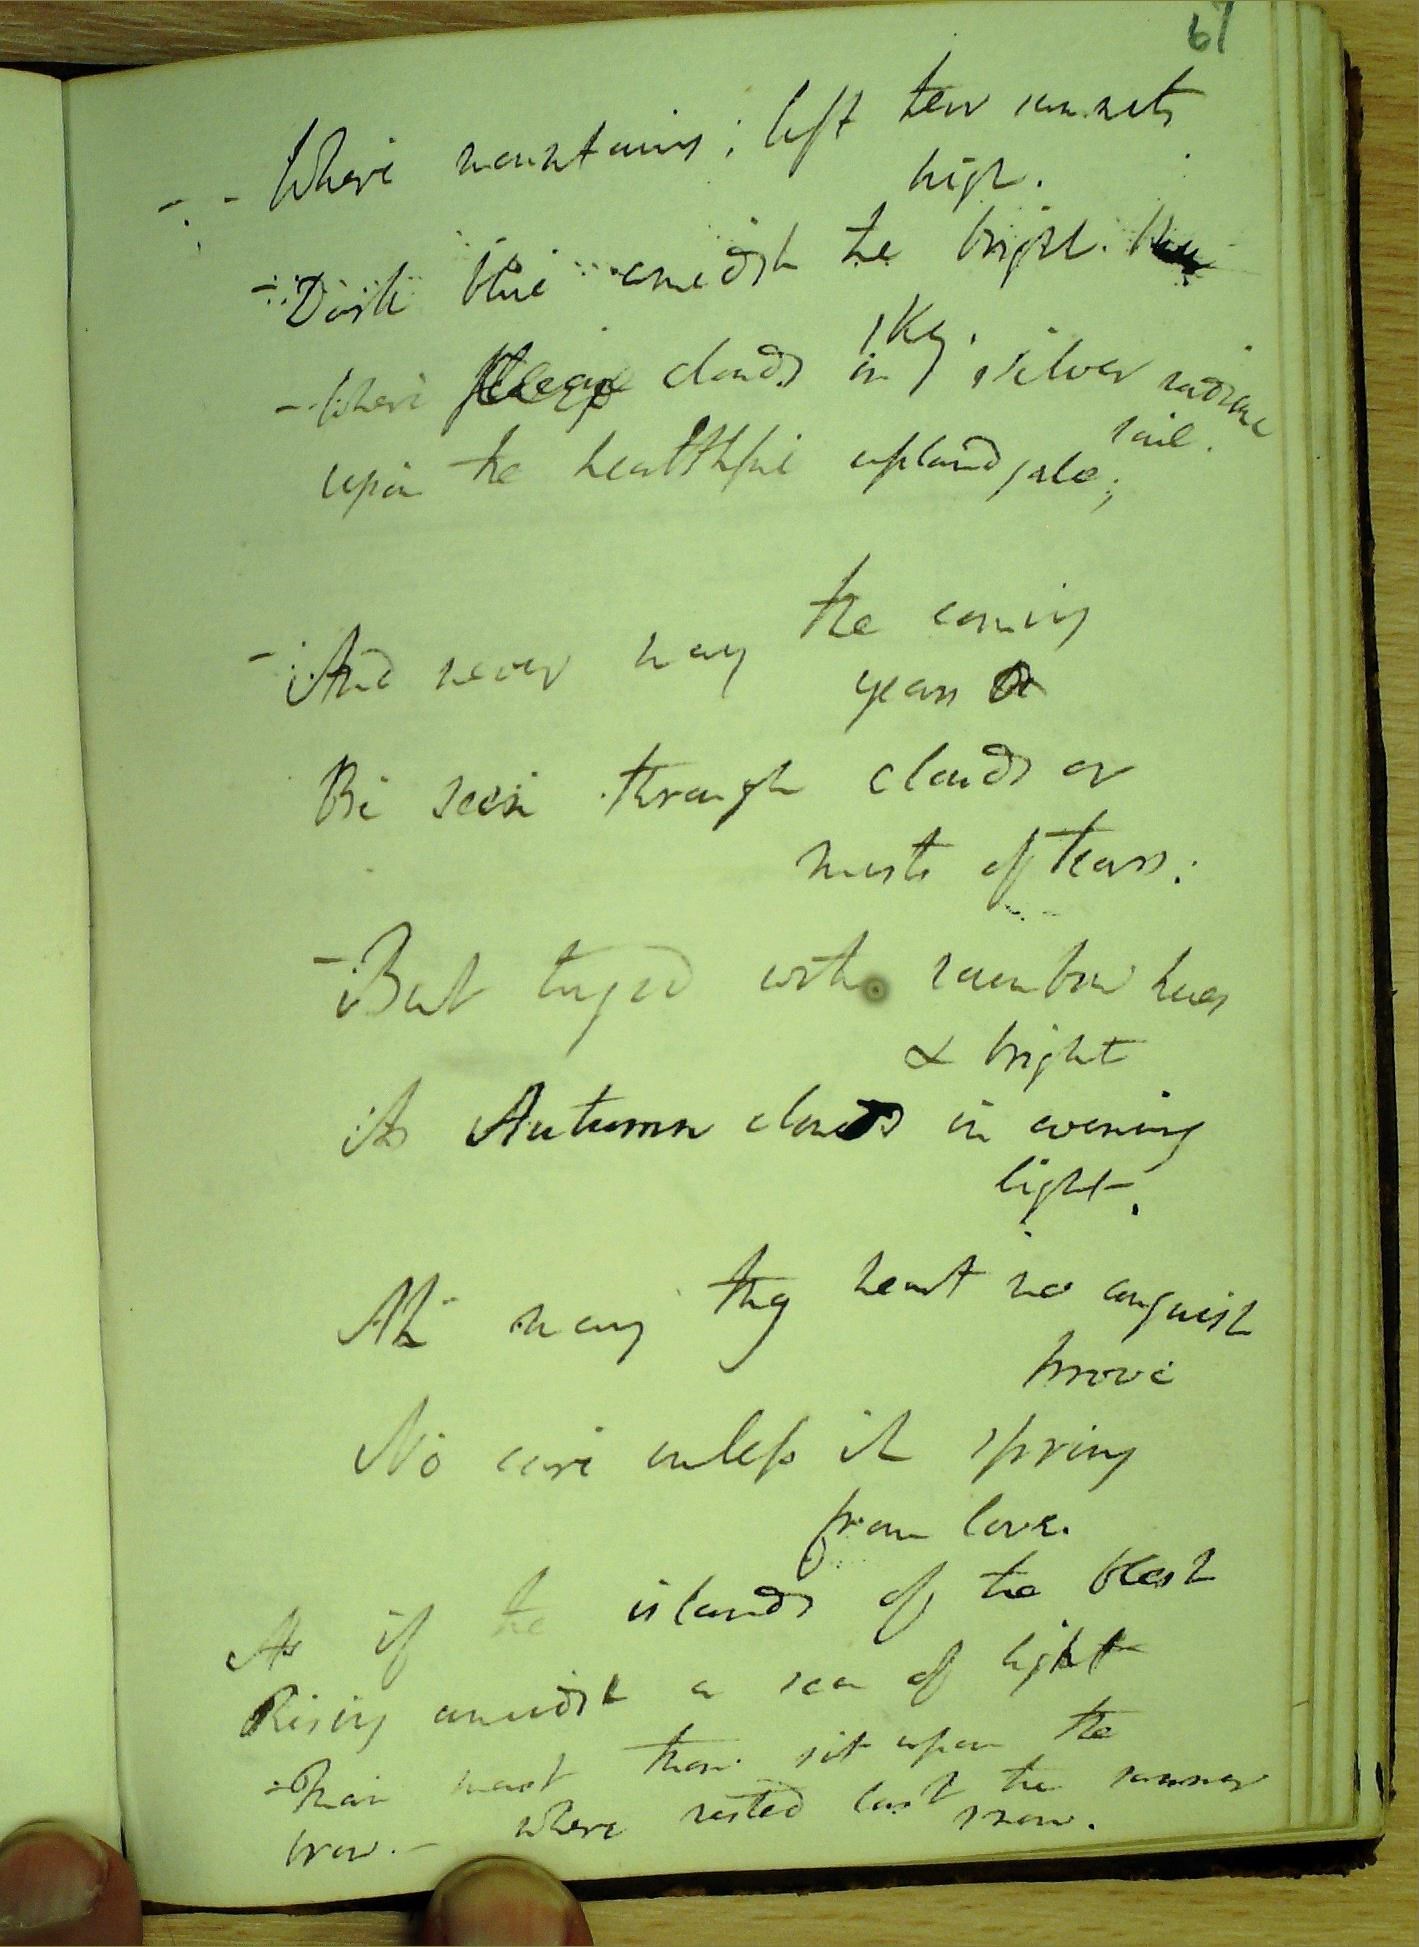 67
- - Where mountains; lift their summits
high.
- Dark blue amidst the bright
sky.
- Where fleecy clouds in silver radiance
sail.
upon the healthful upland gale;
- And never may the coming
years
Be seen through clouds or
mists of tears:
- But tinged with rainbow hues
& bright
As Autumn clouds in evening
light.
Ah may thy heart no anguish
prove
No care unless it spring
from love.
As if the islands of the blest
Rising amidst a sea of light
- Thou must thou sit upon the
brow. - where rested last the summer
snow.